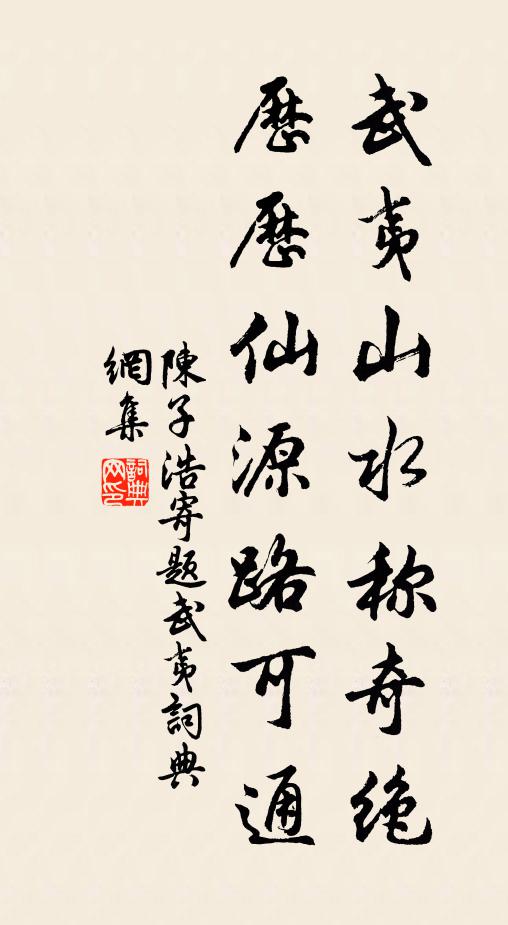 武夷山水称奇绝
歷歷仙源路可通
陳子浩寄题武夷詞典
網集
詞典
网印